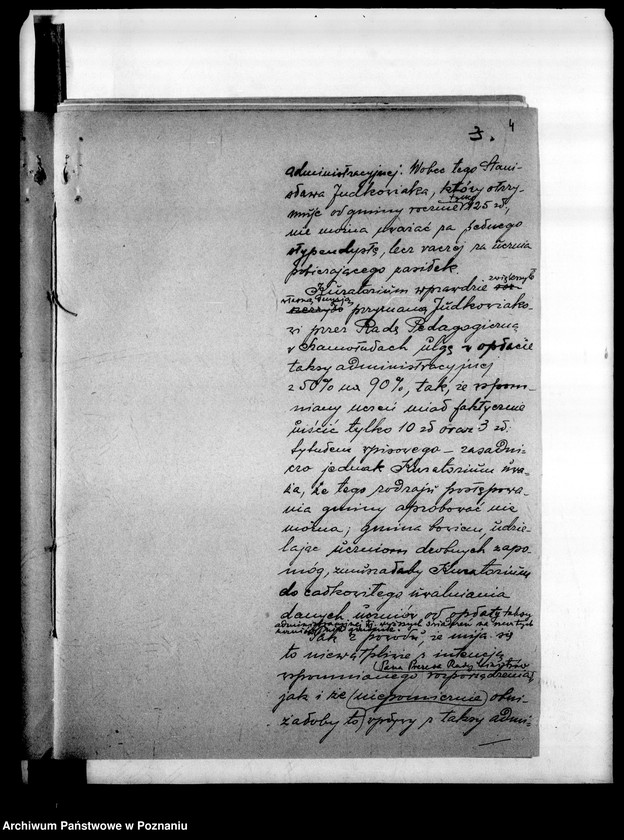 3.
4
administracyjnej. Wobec tego Stani-
sława Judkowiaka, który otrzy-
muje od gminy rocznie tylko 125 zł,
nie można uważać za jednego
stypendystę, lecz raczej za ucznia
pobierającego zasiłek.
Kuratorium wprawdzie zwiększyło
przyznaną Judkowiako-
wi przez Radę Pedagogiczną
w Szamotułach ulgę w opłacie
taksy administracyjnej
z 50% na 90%, tak, że wspom-
niany uczeń miał faktycznie
uiścić tylko 10 zł oraz 3 zł.
tytułem wpisowego – zasadni-
czo jednak Kuratorium uwa-
ża, że tego rodzaju postępowa-
nia gminy aprobować nie
można; gmina bowiem, udzie-
lając uczniom drobnych zapo-
móg, zmuszałaby Kuratorium
do całkowitego uwalniania
danych uczniów od opłaty taksy
administracyjnej
Jak z powodu, że mija się
to niewątpliwie z intencją
Pana Prezesa Rady Ministrów
wspomnianego rozporządzenia,
jak i że (niepomiernie) obni-
żałoby to wpływy z taksy admi-
Archiwum Państwowe w Poznaniu